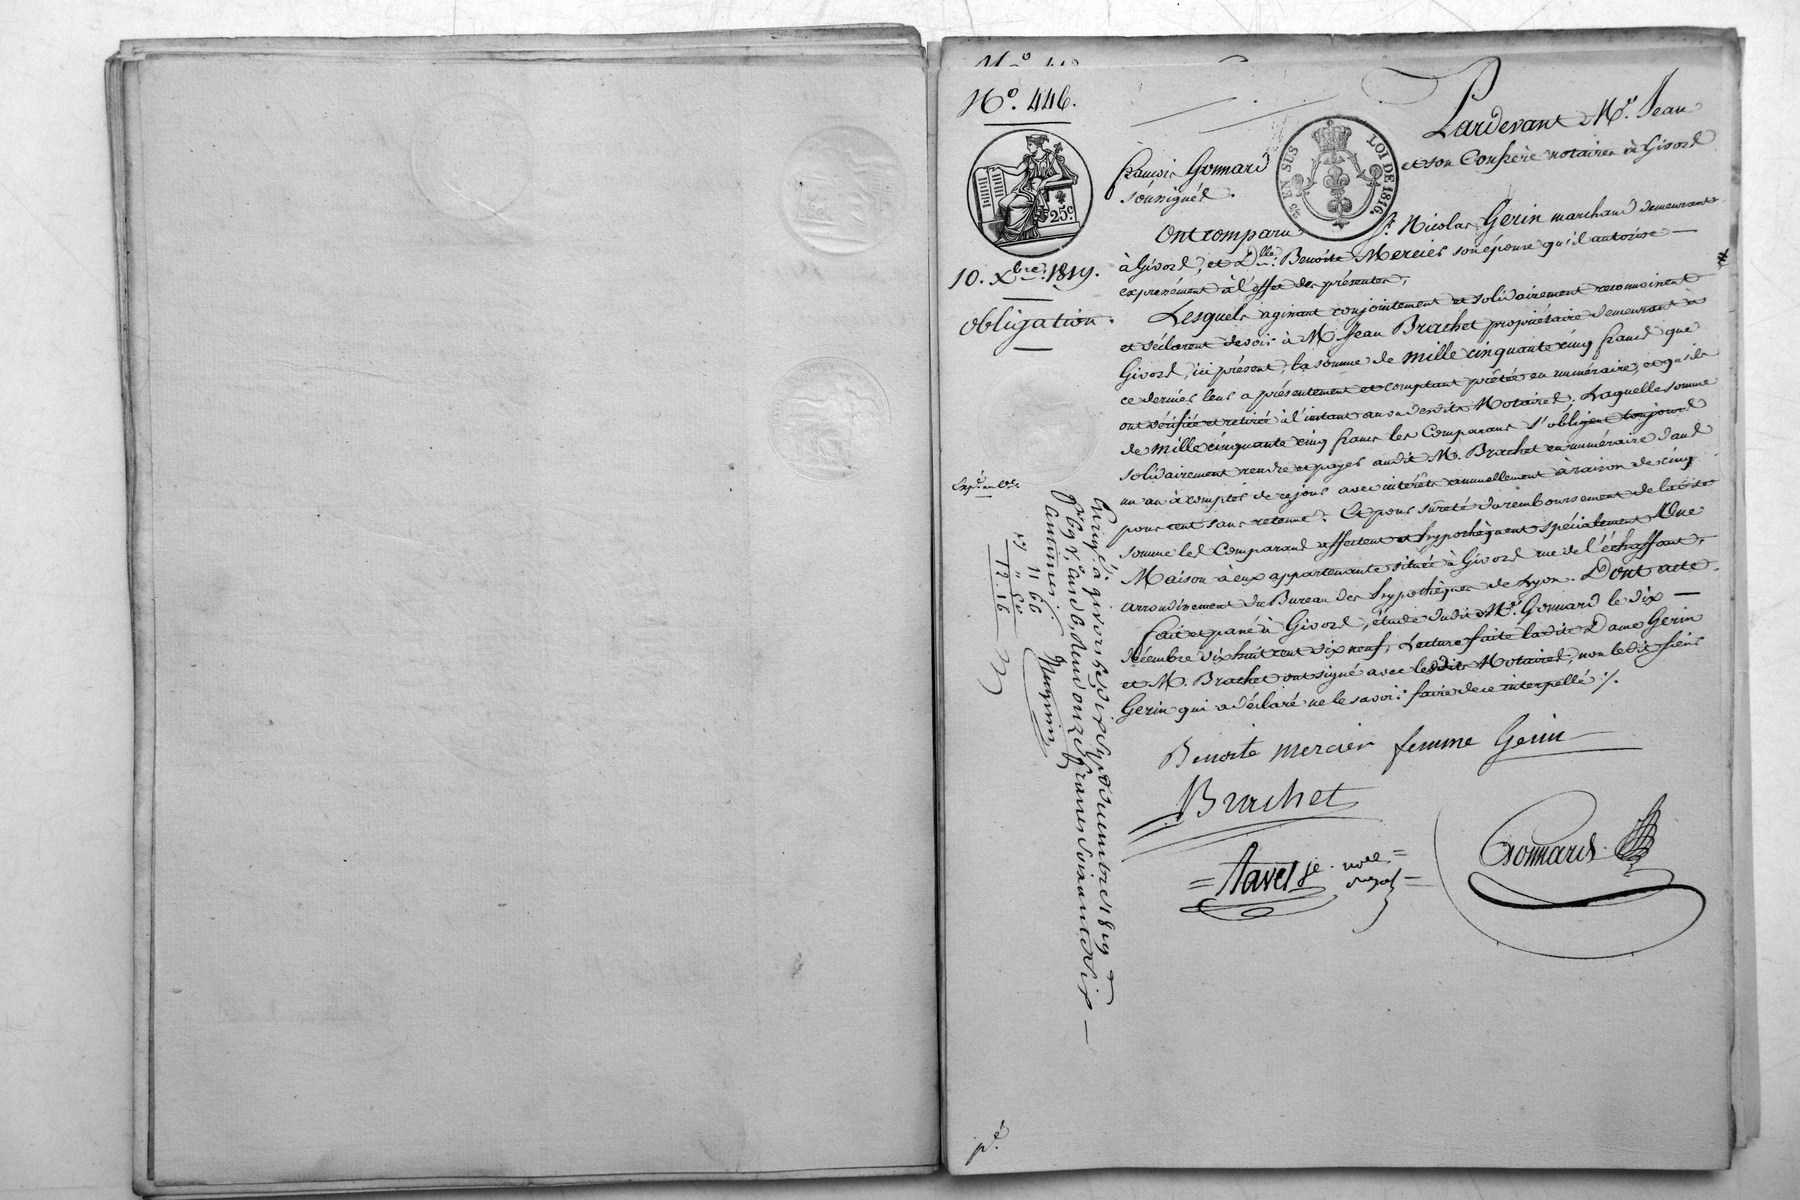 N.º 446.
25.c
EN SUS
LOI DE 1816.
10. Xbre. 1819.
Obligation.
Pardevant Me. Jean
françois Gonnard et son Confrère notaires à Givors
soussignés.
Ont comparu Sr. Nicolas Gerin marchand demeurant
à Givors, et Dlle. Benoite Mercier son épouse qu'il autorise —
expressément à l'effet des présentes,
Lesquels agissant conjointement et solidairement reconnoissent
et déclarent devoir à M. Jean Brachet propriétaire demeurant à
Givors, ici présent, la somme de mille cinquante cinq francs que
ce dernier leur a présentement et comptant prêtée en numéraire, et qu'ils
ont vérifiée et retirée à l'instant au vu desdits Notaires. Laquelle somme
de mille cinquante cinq francs les Comparans s'obligent toujours
solidairement rendre et payer audit M. Brachet en numéraire dans
un an à compter de ce jour avec intérêts annuellement à raison de cinq
pour cent sans retenue. Et pour sûreté du remboursement de ladite
somme les Comparans affectent et hypothèquent spécialement Une
Maison à eux appartenante située à Givors rue de l'échaffaut,
arrondissement du Bureau des hypothèques de Lyon. Dont acte.
fait et passé à Givors, étude dudit Me. Gonnard le dix —
décembre dix huit cent dix neuf, Lecture faite ladite Dame Gerin
et M. Brachet ont signé avec lesdits Notaires, non ledit sieur
Gerin qui a déclaré ne le savoir faire de ce interpellé ./.
Benoite mercier femme Gerin
Brachet
Tavel je. nore
Gonnard
Enregé. à givors le dix sept décembre 1819
onze francs soixante six —
11 66
12. 16